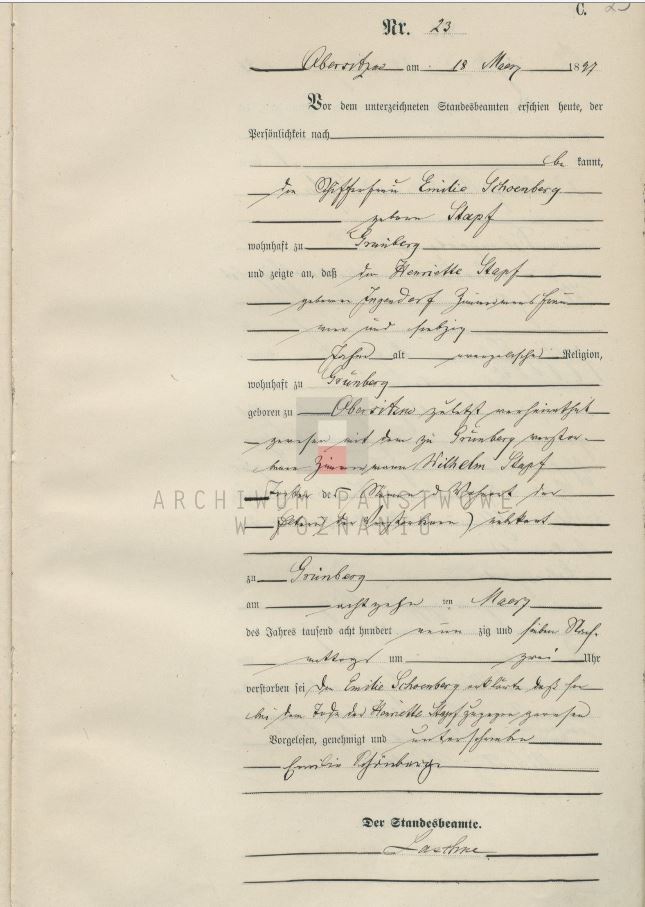 C. 23
Nr. 23
Obersitzko am 18 Maerz 1897
Vor dem unterzeichneten Standesbeamten erschien heute, der
Persönlichkeit nach
be kannt,
die Schifferfrau Emilie Schoenberg
geborne Stapf
wohnhaft zu Grünberg
und zeigte an, daß die Henriette Stapf
geborne Jagendorf Zimmermannsfrau
vier und siebzig
Jahre alt evangelischer Religion,
wohnhaft zu Grünberg
geboren zu Obersitzko zuletzt verheirathet
gewesen mit dem zu Grünberg verstor-
benen Zimmermann Wilhelm Stapf
Tochter der (Namen und Wohnort der
Eltern der Verstorbenen) unbekannt
ARCHIWUM PAŃSTWOWE
W POZNANIU
zu Grünberg
am achtzehn ten Maerz
des Jahres tausend acht hundert neun zig und sieben Nach-
mittags um zwei Uhr
verstorben sei Die Emilie Schoenberg erklärte daß sie
bei dem Tode der Henriette Stapf zugegen gewesen
Vorgelesen, genehmigt und unterschrieben
Emilie Schönberg
Der Standesbeamte.